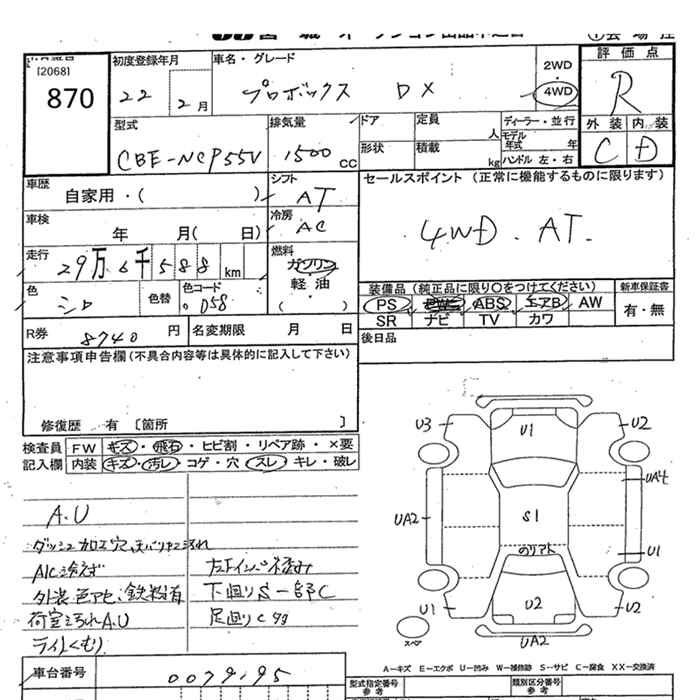 [2068]
870
初度登録年月
22 2月
車名・グレード
プロボックス DX
2WD
・
4WD
評価点
R
外装 内装
C D
型式
CBE-NCP55V
排気量
1500 CC
ドア
形状
定員 人
積載 kg
ディーラー・並行
モデル年式 年
ハンドル 左・右
車歴
自家用・( )
シフト
AT
セールスポイント (正常に機能するものに限ります)
4WD. AT.
車検
年 月( 日)
冷房
AC
走行
29万6千588 km
燃料
ガソリン
軽・油
( )
色
シロ
色替
色コード
058
装備品(純正品に限り〇をつけてください)
PS PW ABS エアB AW
SR ナビ TV カワ
新車保証書
有・無
R券
8740 円
名変期限 月 日
後日品
注意事項申告欄(不具合内容等は具体的に記入して下さい)
修復歴 有 [箇所 ]
検査員 FW キズ・飛石・ヒビ割・リペア跡・×要
記入欄 内装 キズ・汚レ・コゲ・穴・スレ・キレ・破レ
A.U
ダッシュ加工穴
A/C冷えず
外装色アセ、鉄粉有
下回りS一部C
荷室汚れA.U
足回りC
ライトくもり
U3 U1 U2
UA4
UA2 S1
U1
のリアト
U1 U2 U2
スペア
UA2
A-キズ E-エクボ U-凹み W-補修跡 S-サビ C-腐食 XX-交換済
車台番号
0079195
型式指定番号
参考
類別区分番号
参考